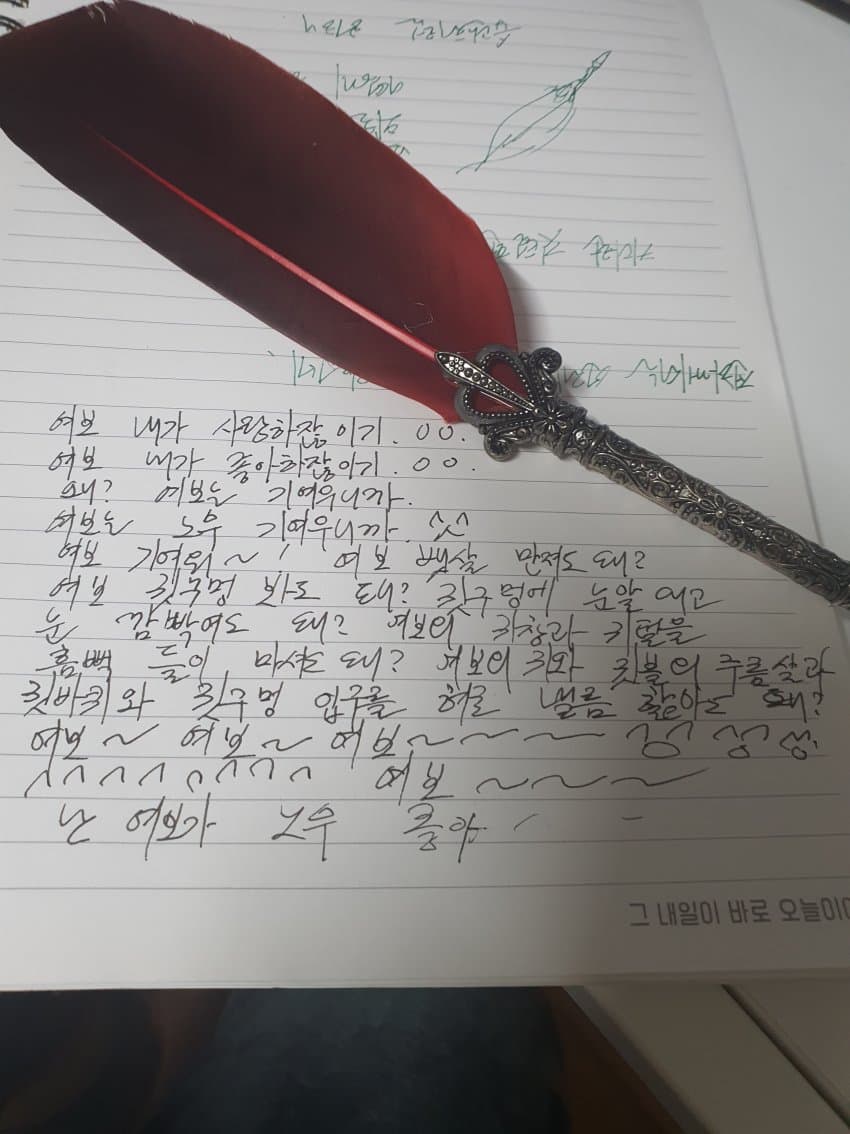 여보 내가 사랑하잖이기. ㅇㅇ.
여보 내가 좋아하잖이기. ㅇㅇ.
왜? 여보는 기여우니까.
여보는 노무 기여우니까. ^^
여보 기여워~! 여보 뱃살 만져도 돼?
여보 귓구멍 봐도 돼? 귓구멍에 눈알 여고
눈 깜빡여도 돼? 여보의 귀창과 귀털을
흠뻑 들이 마셔도 돼? 여보의 귀와 귓불의 주름살과
귓바퀴와 귓구멍 입구를 혀로 낼름 핥아도 돼?
여보~ 여보~ 여보~~~~
여보~~~
난 여보가 노무 좋아
그 내일이 바로 오늘이